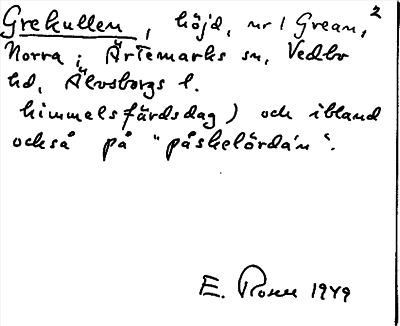 Grekullen, höjd, nr 1 Grean, 2
Norra; Ärtemarks sn, Vedbo
hd, Älvsborgs l.
himmelsfärdsdag) och ibland
också på "påskelörda'n".
E. 1949